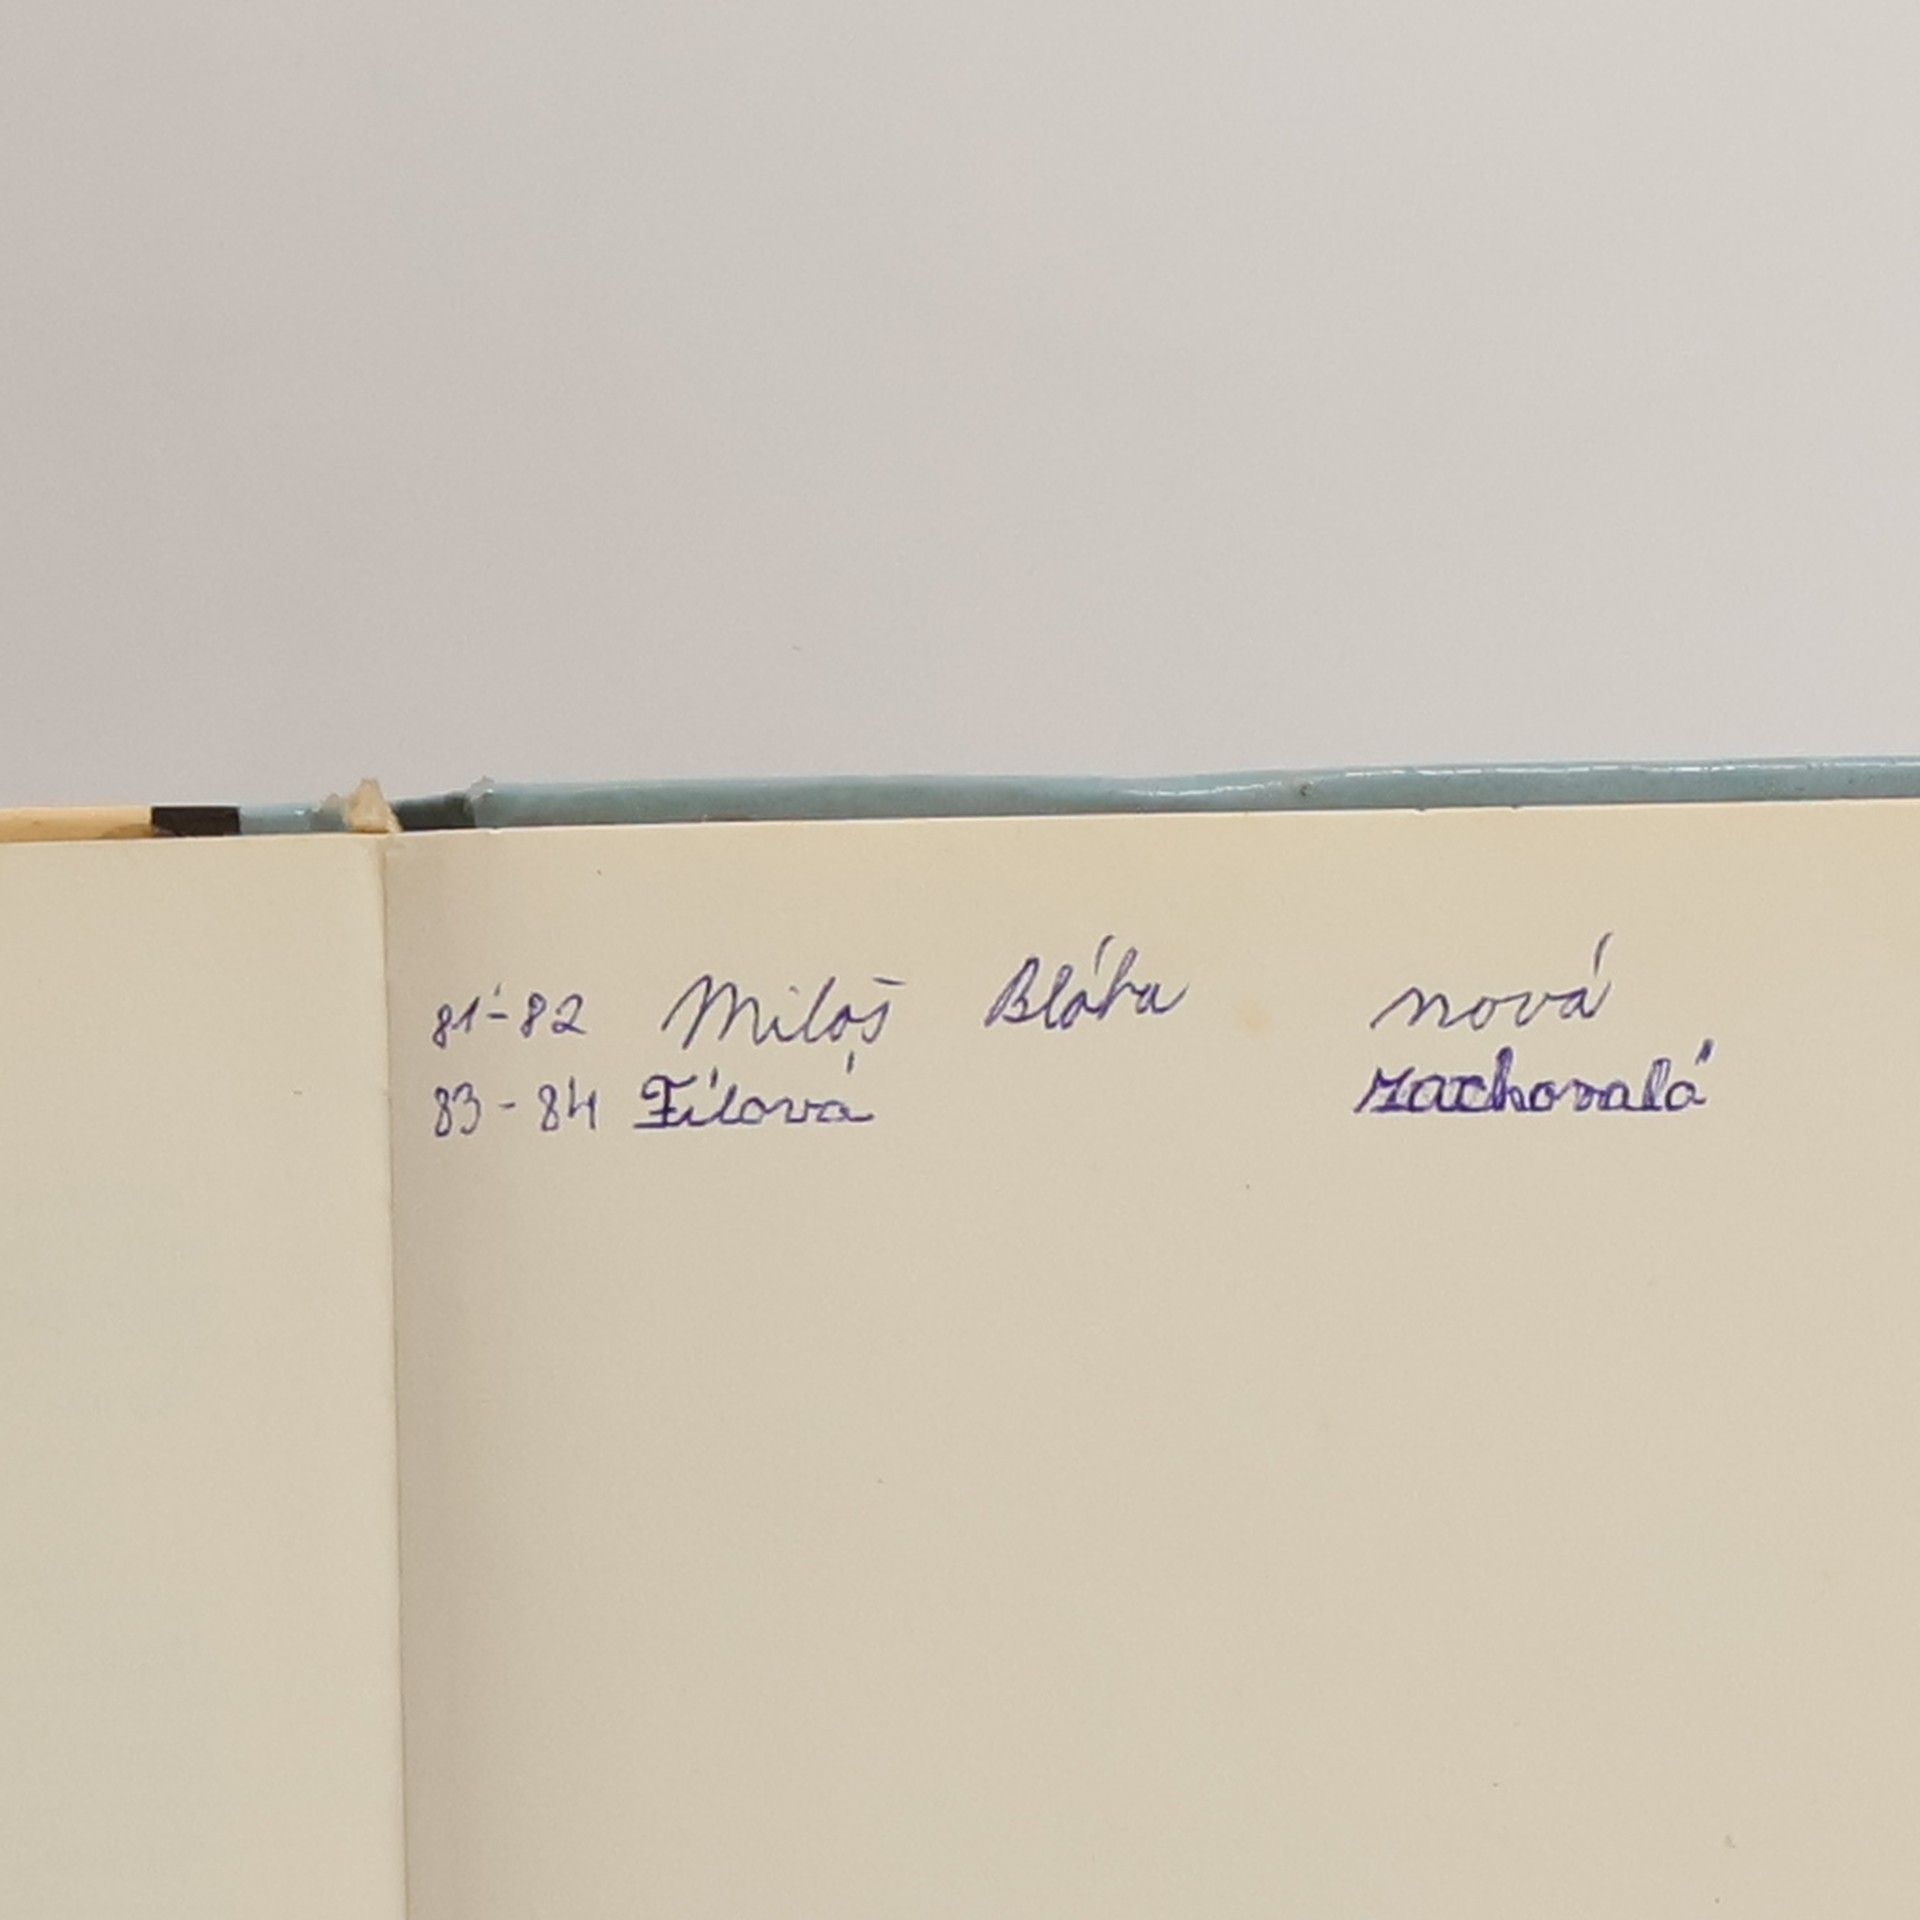 81-82 Miloš Bláha nová
83-84 Fílová zachovalá